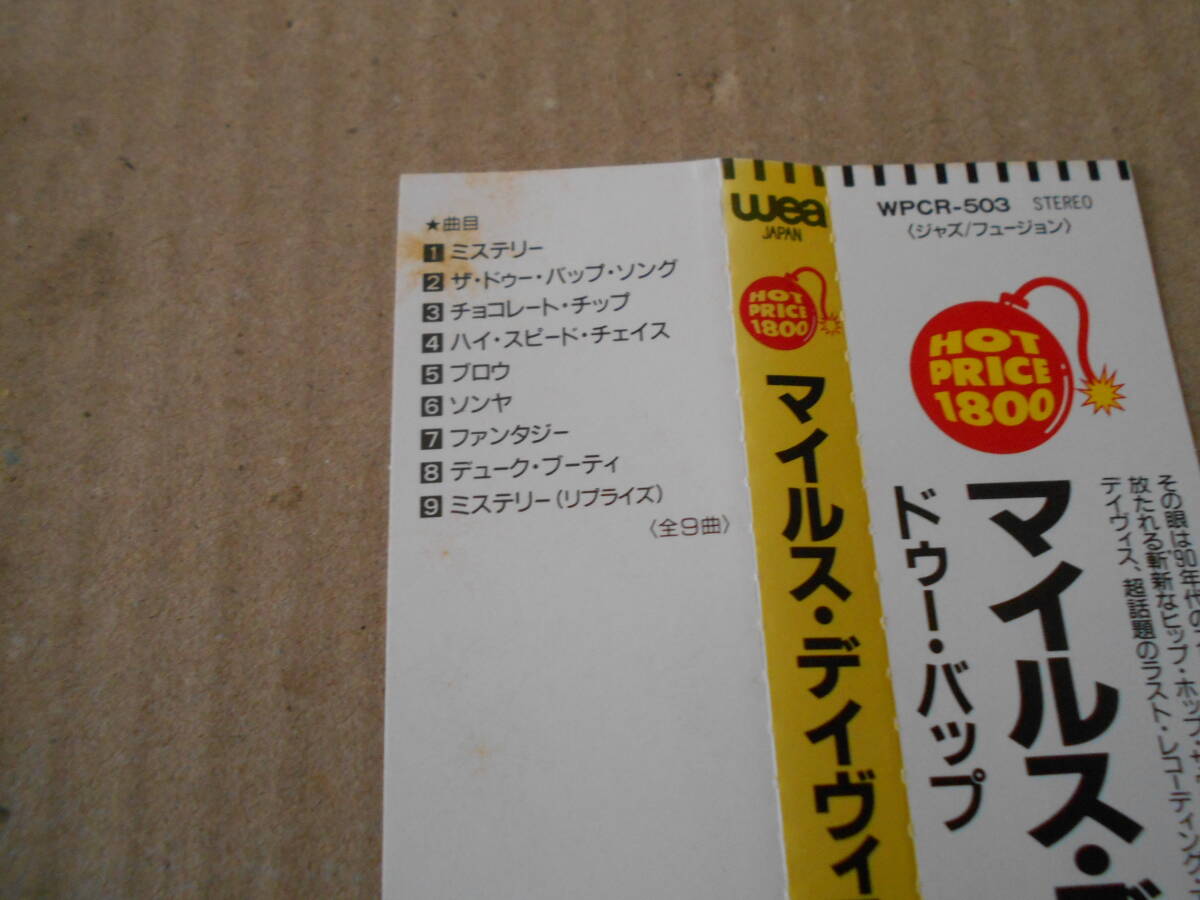 ★曲目
1 ミステリー
2 ザ・ドゥー・バップ・ソング
3 チョコレート・チップ
4 ハイ・スピード・チェイス
5 ブロウ
6 ソンヤ
7 ファンタジー
8 デューク・ブーティ
9 ミステリー(リプライズ)
〈全9曲〉
wea
JAPAN
HOT
PRICE
1800
マイルス・デイヴィ
WPCR-503 STEREO
〈ジャズ/フュージョン〉
HOT
PRICE
1800
その眼は'90年代の
放たれる斬新なヒップ・ホップ・
デイヴィス、超話題のラスト・レコーディング・
マイルス・デ
ドゥー・バップ